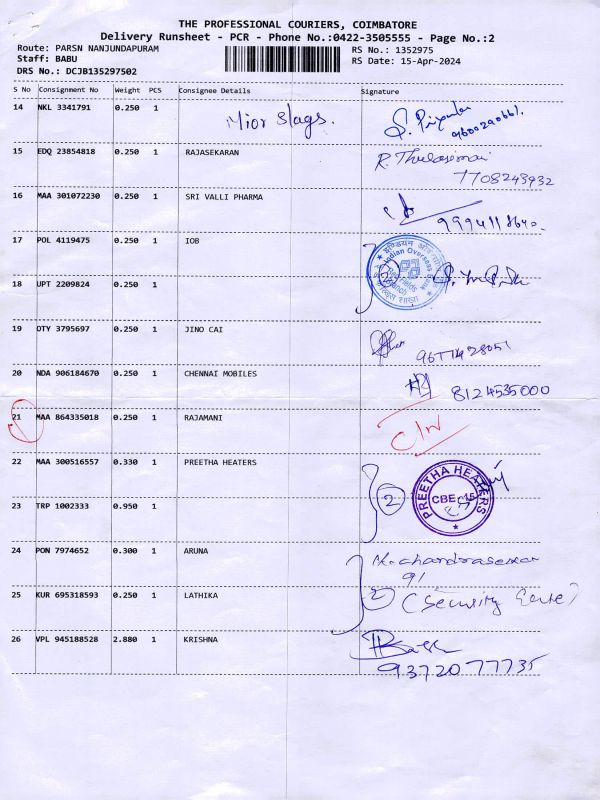 THE PROFESSIONAL COURIERS, COIMBATORE
Delivery Runsheet - PCR - Phone No.:0422-3505555 - Page No.:2
Route: PARSN NANJUNDAPURAM
RS No.: 1352975
Staff: BABU
RS Date: 15-Apr-2024
DRS No.: DCJB135297502
S No Consignment No Weight PCS Consignee Details Signature
14 NKL 3341791 0.250 1
15 EDQ 23854818 0.250 1 RAJASEKARAN
7708249932
16 MAA 301072230 0.250 1 SRI VALLI PHARMA
17 POL 4119475 0.250 1 IOB
Indian Overseas
18 UPT 2209824 0.250 1
19 OTY 3795697 0.250 1 JINO CAI
20 NDA 906184670 0.250 1 CHENNAI MOBILES
8124535000
21 MAA 864335018 0.250 1 RAJAMANI
22 MAA 300516557 0.330 1 PREETHA HEATERS
2
PREETHA HEATERS
CBE-45
23 TRP 1002333 0.950 1
24 PON 7974652 0.300 1 ARUNA
91
25 KUR 695318593 0.250 1 LATHIKA
2
(Security
26 VPL 945188528 2.880 1 KRISHNA
9372077735